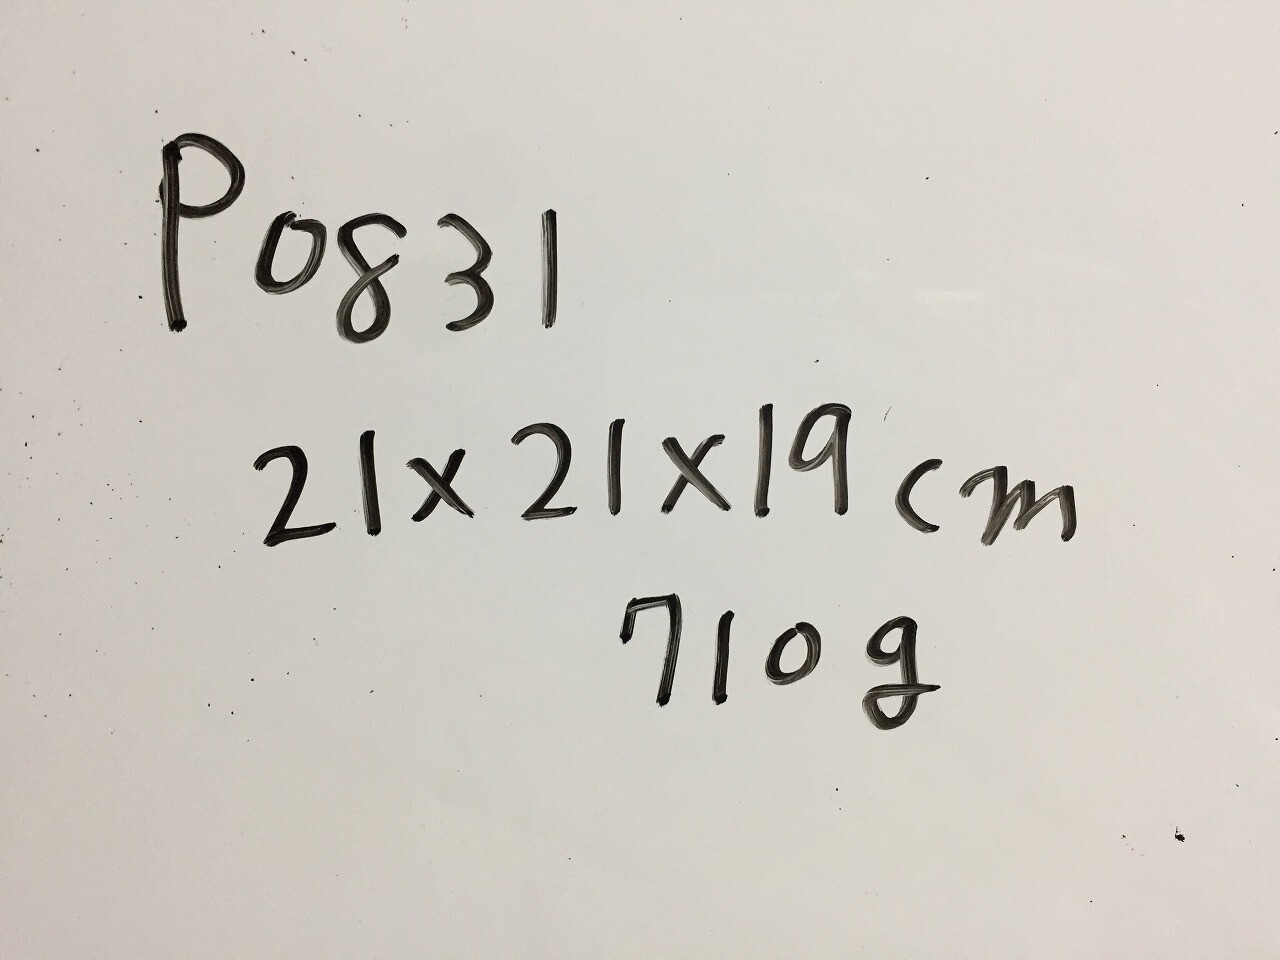 P0831
21x21x19cm
710g